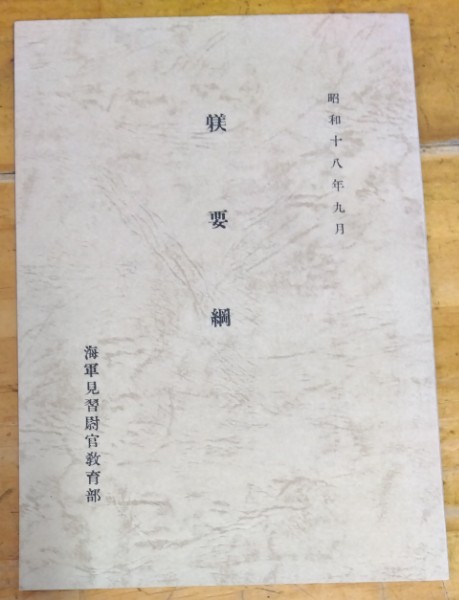 昭和十八年九月
躾要綱
海軍見習尉官教育部